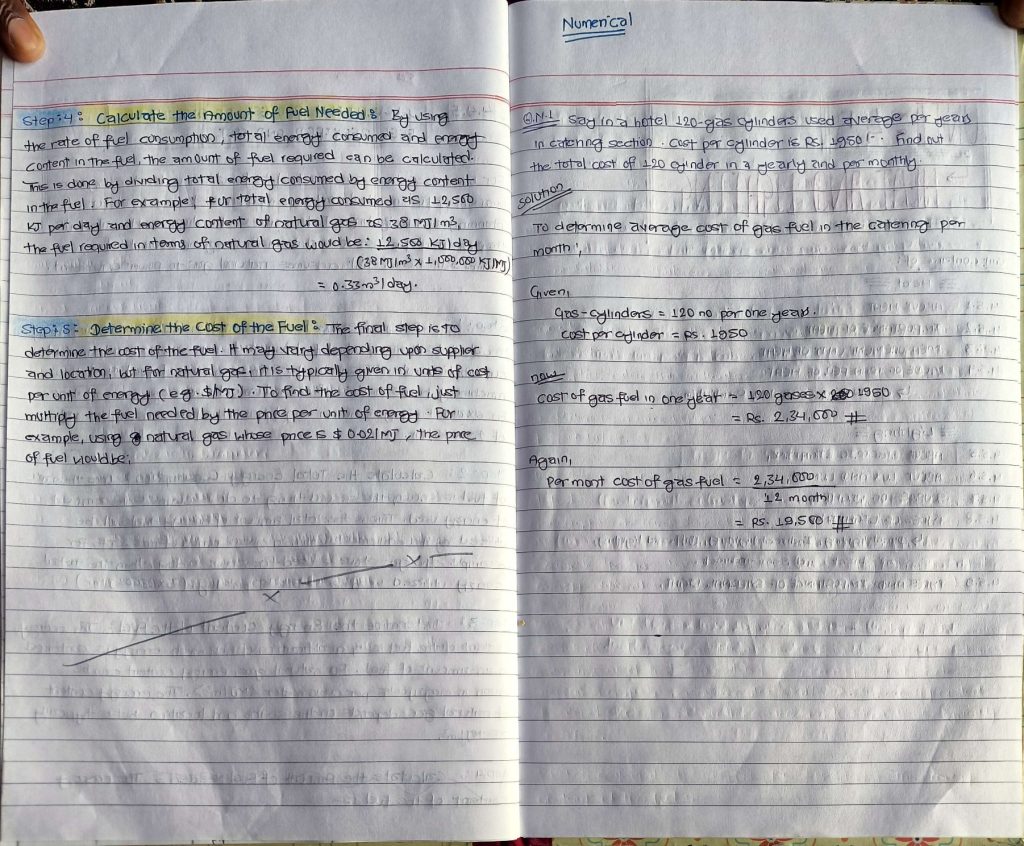 Step:4: Calculate the Amount of Fuel Needed: By using
the rate of fuel consumption, total energy consumed and energy
content in the fuel, the amount of fuel required can be calculated.
This is done by dividing total energy consumed by energy content
in the fuel. For example, for total energy consumed is 12,560
KJ per day and energy content of natural gas is 38 MJ/m³,
the fuel required in terms of natural gas woud be: 12,560 KJ/day
(38 MJ/m³ x 1,000,000 KJ/MJ)
= 0.33m³/day.
Step:5: Determine the Cost of the Fuel: The final step is to
determine the cost of the fuel. It may vary depending upon supplier
and location, but for natural gas, it is typically given in units of cost
per unit of energy (eg. $/MJ). To find the cost of fuel, just
multiply the fuel needed by the price per unit of energy. For
example, using natural gas whose price is $ 0.02/MJ, the price
of fuel would be;
x
x
Numerical
Q.N.1. Say in a hotel 120-gas cylinders used average per years
in catering section. Cost per cylinder is RS. 1950/-. Find out
the total cost of 120 cylinder in a yearly and per monthly.
solution
To determine average cost of gas fuel in the catering per
month;
Given,
Gas-cylinders = 120 no per one years.
Cost per cylinder = RS. 1950
now
cost of gas fuel in one year = 120 gases x 1950
= Rs. 2,34,000 #
Again,
Per mont cost of gas fuel = 2,34,000
12 month
= RS. 19,500 #